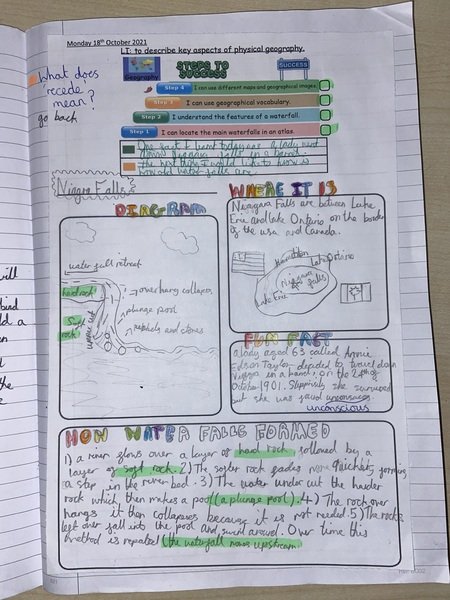 Monday 18th October 2021
LI: to describe key aspects of physical geography.
What does
recede
mean?
go back
Geography
STEPS TO
SUCCESS
SUCCESS
Step 4 I can use different maps and geographical images.
Step 3 I can use geographical vocabulary.
Step 2 I understand the features of a waterfall.
Step 1 I can locate the main waterfalls in an atlas.
One fact I learnt today was a lady went
down Niagara falls in a barrel.
The next thing I would like to know is
how old water falls are.
Niagra Falls
DIAGRAM
water fall retreat
hard rock
Soft
rock
under cut
over hang collapses
plunge pool
and stones
WHERE IT IS
Niagara Falls are between Lake
Erie and lake Ontario on the border
of the usa and Canada.
Hamilton
Lake Ontario
Niagara
falls
Lake Erie
FUN FACT
a lady aged 63 called Annie
Edson Taylor decided to travel down
Niagara in a barrel, on the 24th of
October 1901. she survived
but she was found
unconscious
HOW WATER FALLS FORMED
1) a river flows over a layer of hard rock, followed by a
layer of soft rock. 2) The softer rock fades more quickely, forming
a step in the river bed. 3) The water under cut the harder
rock which then makes a pool (a plunge pool). 4) The rock over
hangs it then collapses because it is not needed. 5) The rocks
left over fall into the pool and swirl around. Over time this
method is repeated (the waterfall moves upstream